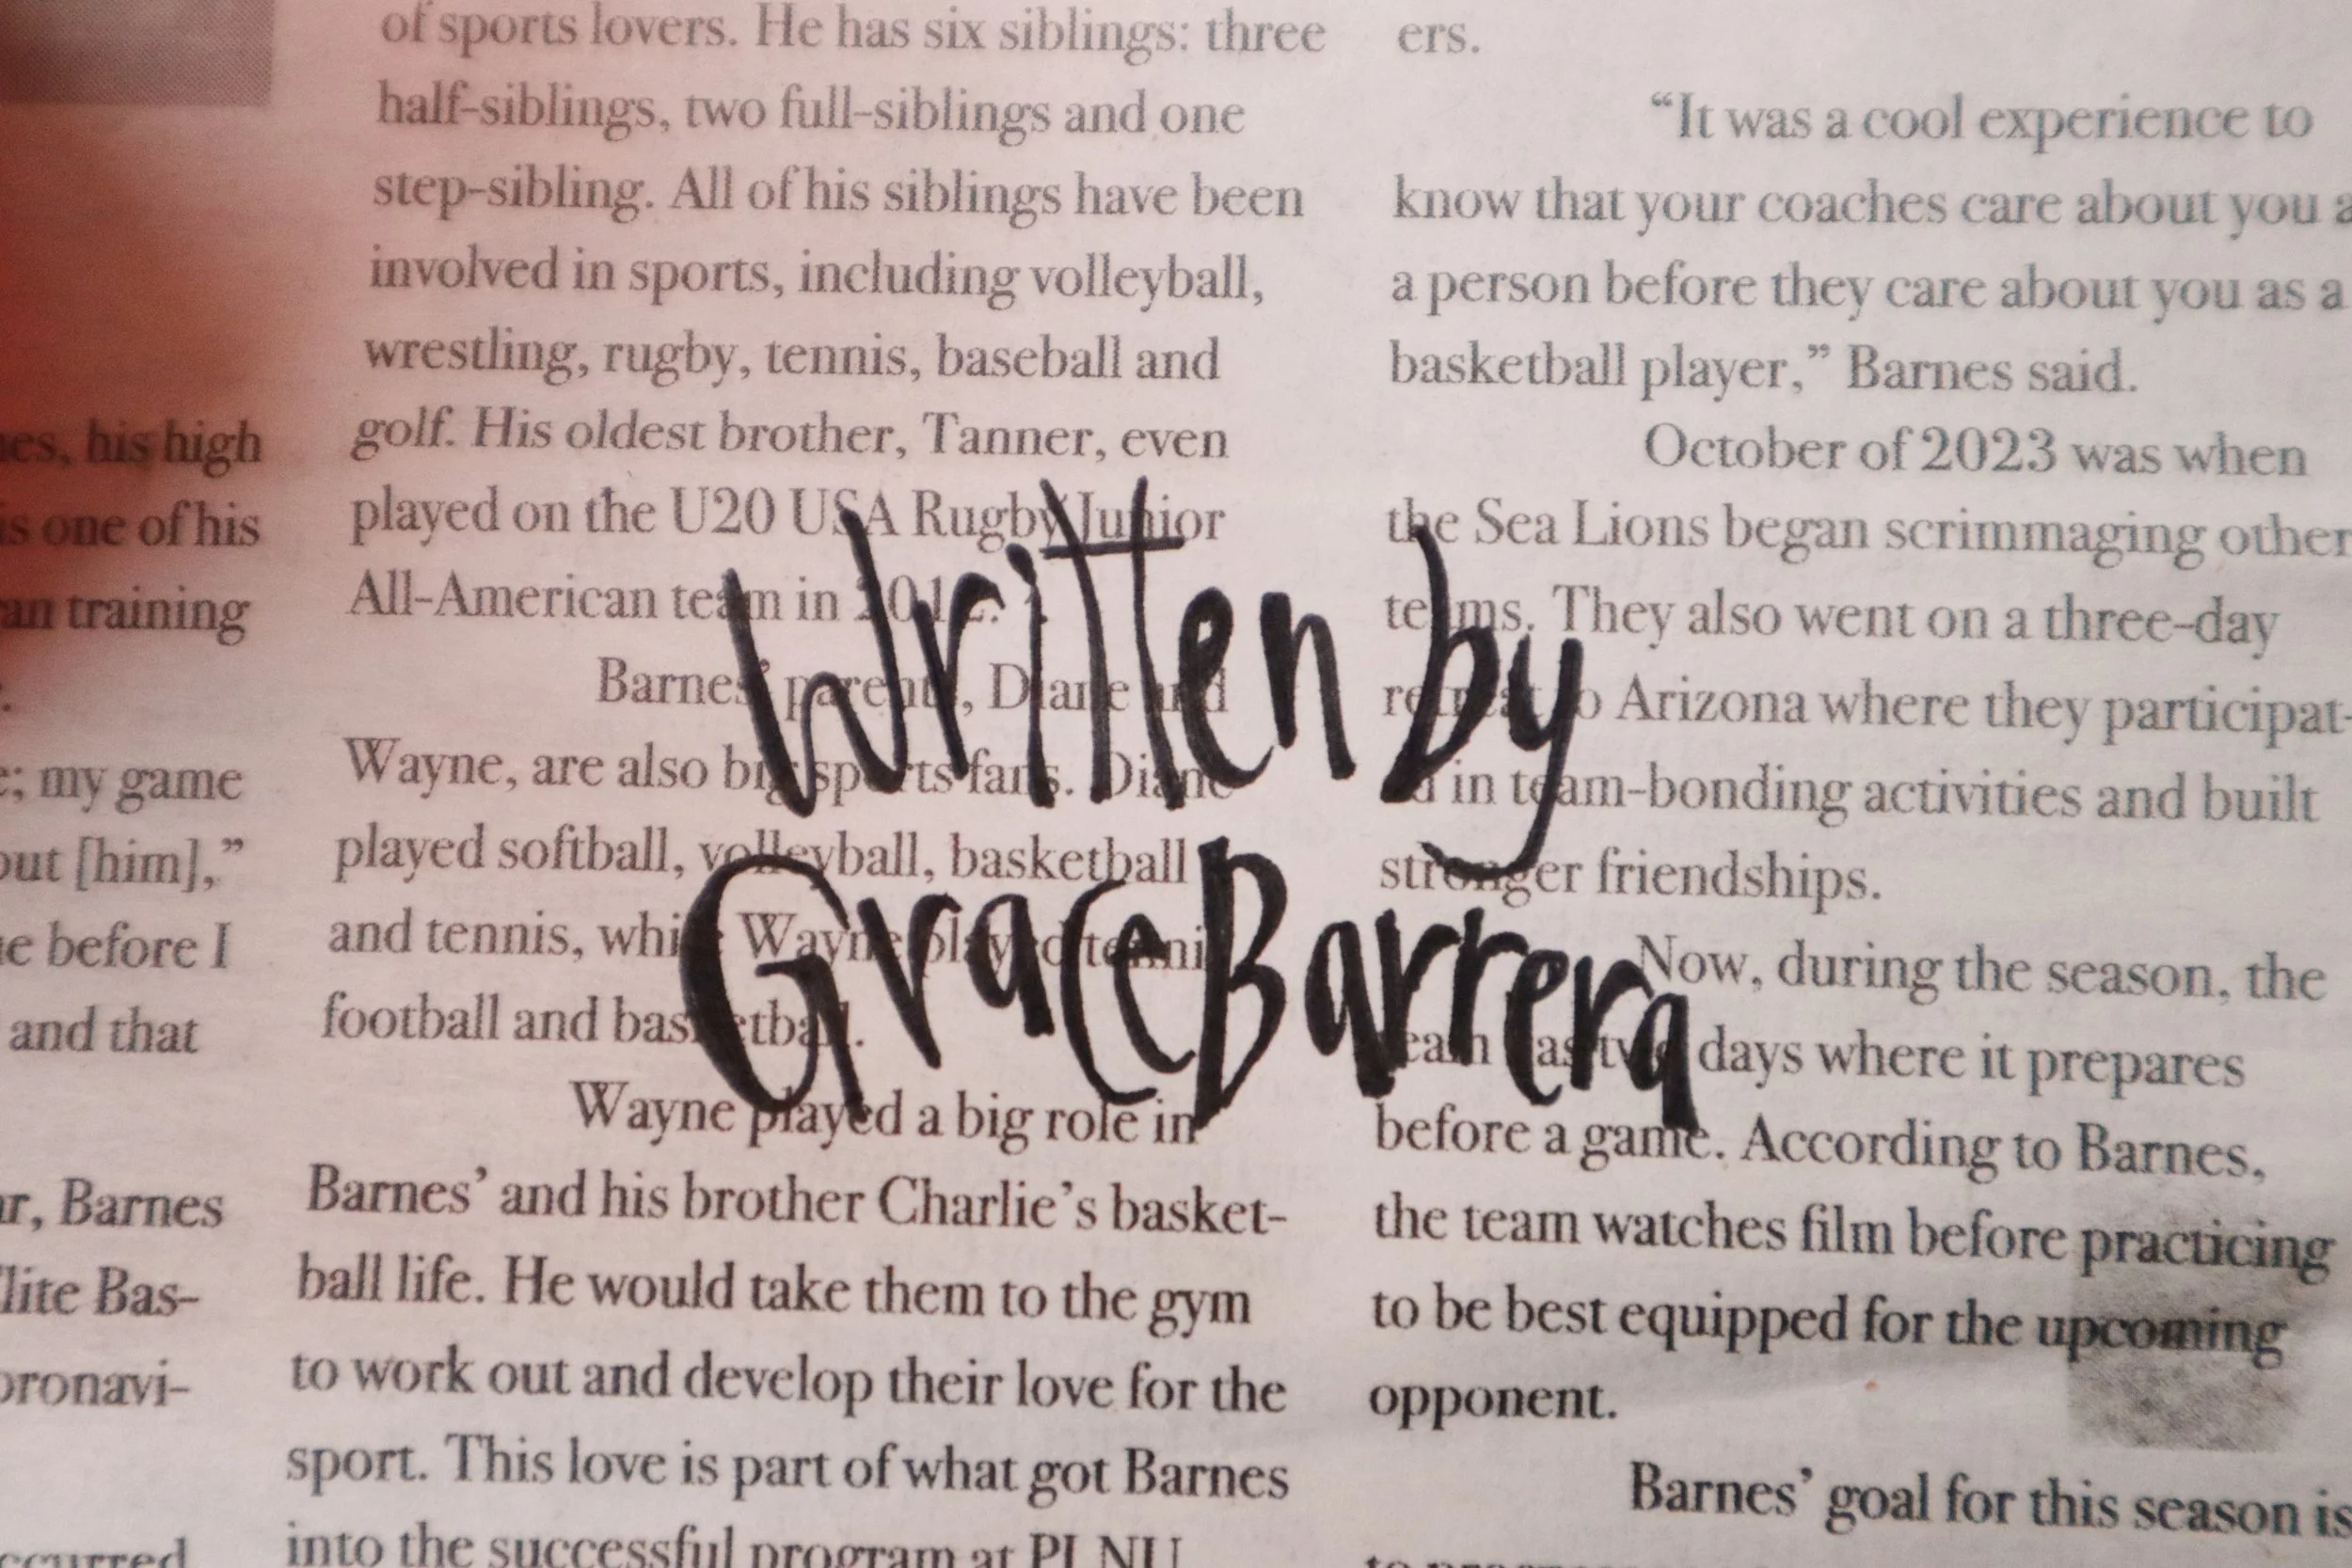 nes, his high
is one of his
an training
e; my game
out [him],”
ne before I
and that
ar, Barnes
lite Bas-
oronavi-
ccurred
of sports lovers. He has six siblings: three
half-siblings, two full-siblings and one
step-sibling. All of his siblings have been
involved in sports, including volleyball,
wrestling, rugby, tennis, baseball and
golf. His oldest brother, Tanner, even
played on the U20 USA Rugby Junior
All-American team in
Barnes’ parents, Diane and
Wayne, are also big sports fans. Diane
played softball, volleyball, basketball
and tennis, while Wayne played tennis
football and basketball.
Wayne played a big role in
Barnes’ and his brother Charlie’s basket-
ball life. He would take them to the gym
to work out and develop their love for the
sport. This love is part of what got Barnes
into the successful program at PLNU
ers.
“It was a cool experience to
know that your coaches care about you a
a person before they care about you as a
basketball player,” Barnes said.
October of 2023 was when
the Sea Lions began scrimmaging other
teams. They also went on a three-day
retreat to Arizona where they participat-
ed in team-bonding activities and built
stronger friendships.
Now, during the season, the
team has two days where it prepares
before a game. According to Barnes,
the team watches film before practicing
to be best equipped for the upcoming
opponent.
Barnes’ goal for this season is
Written by
Grace Barrera